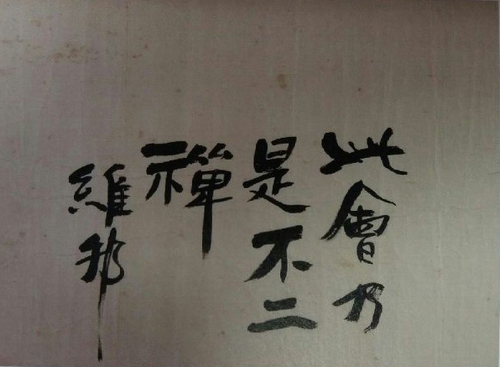 此會乃
是不二
禪
維邦